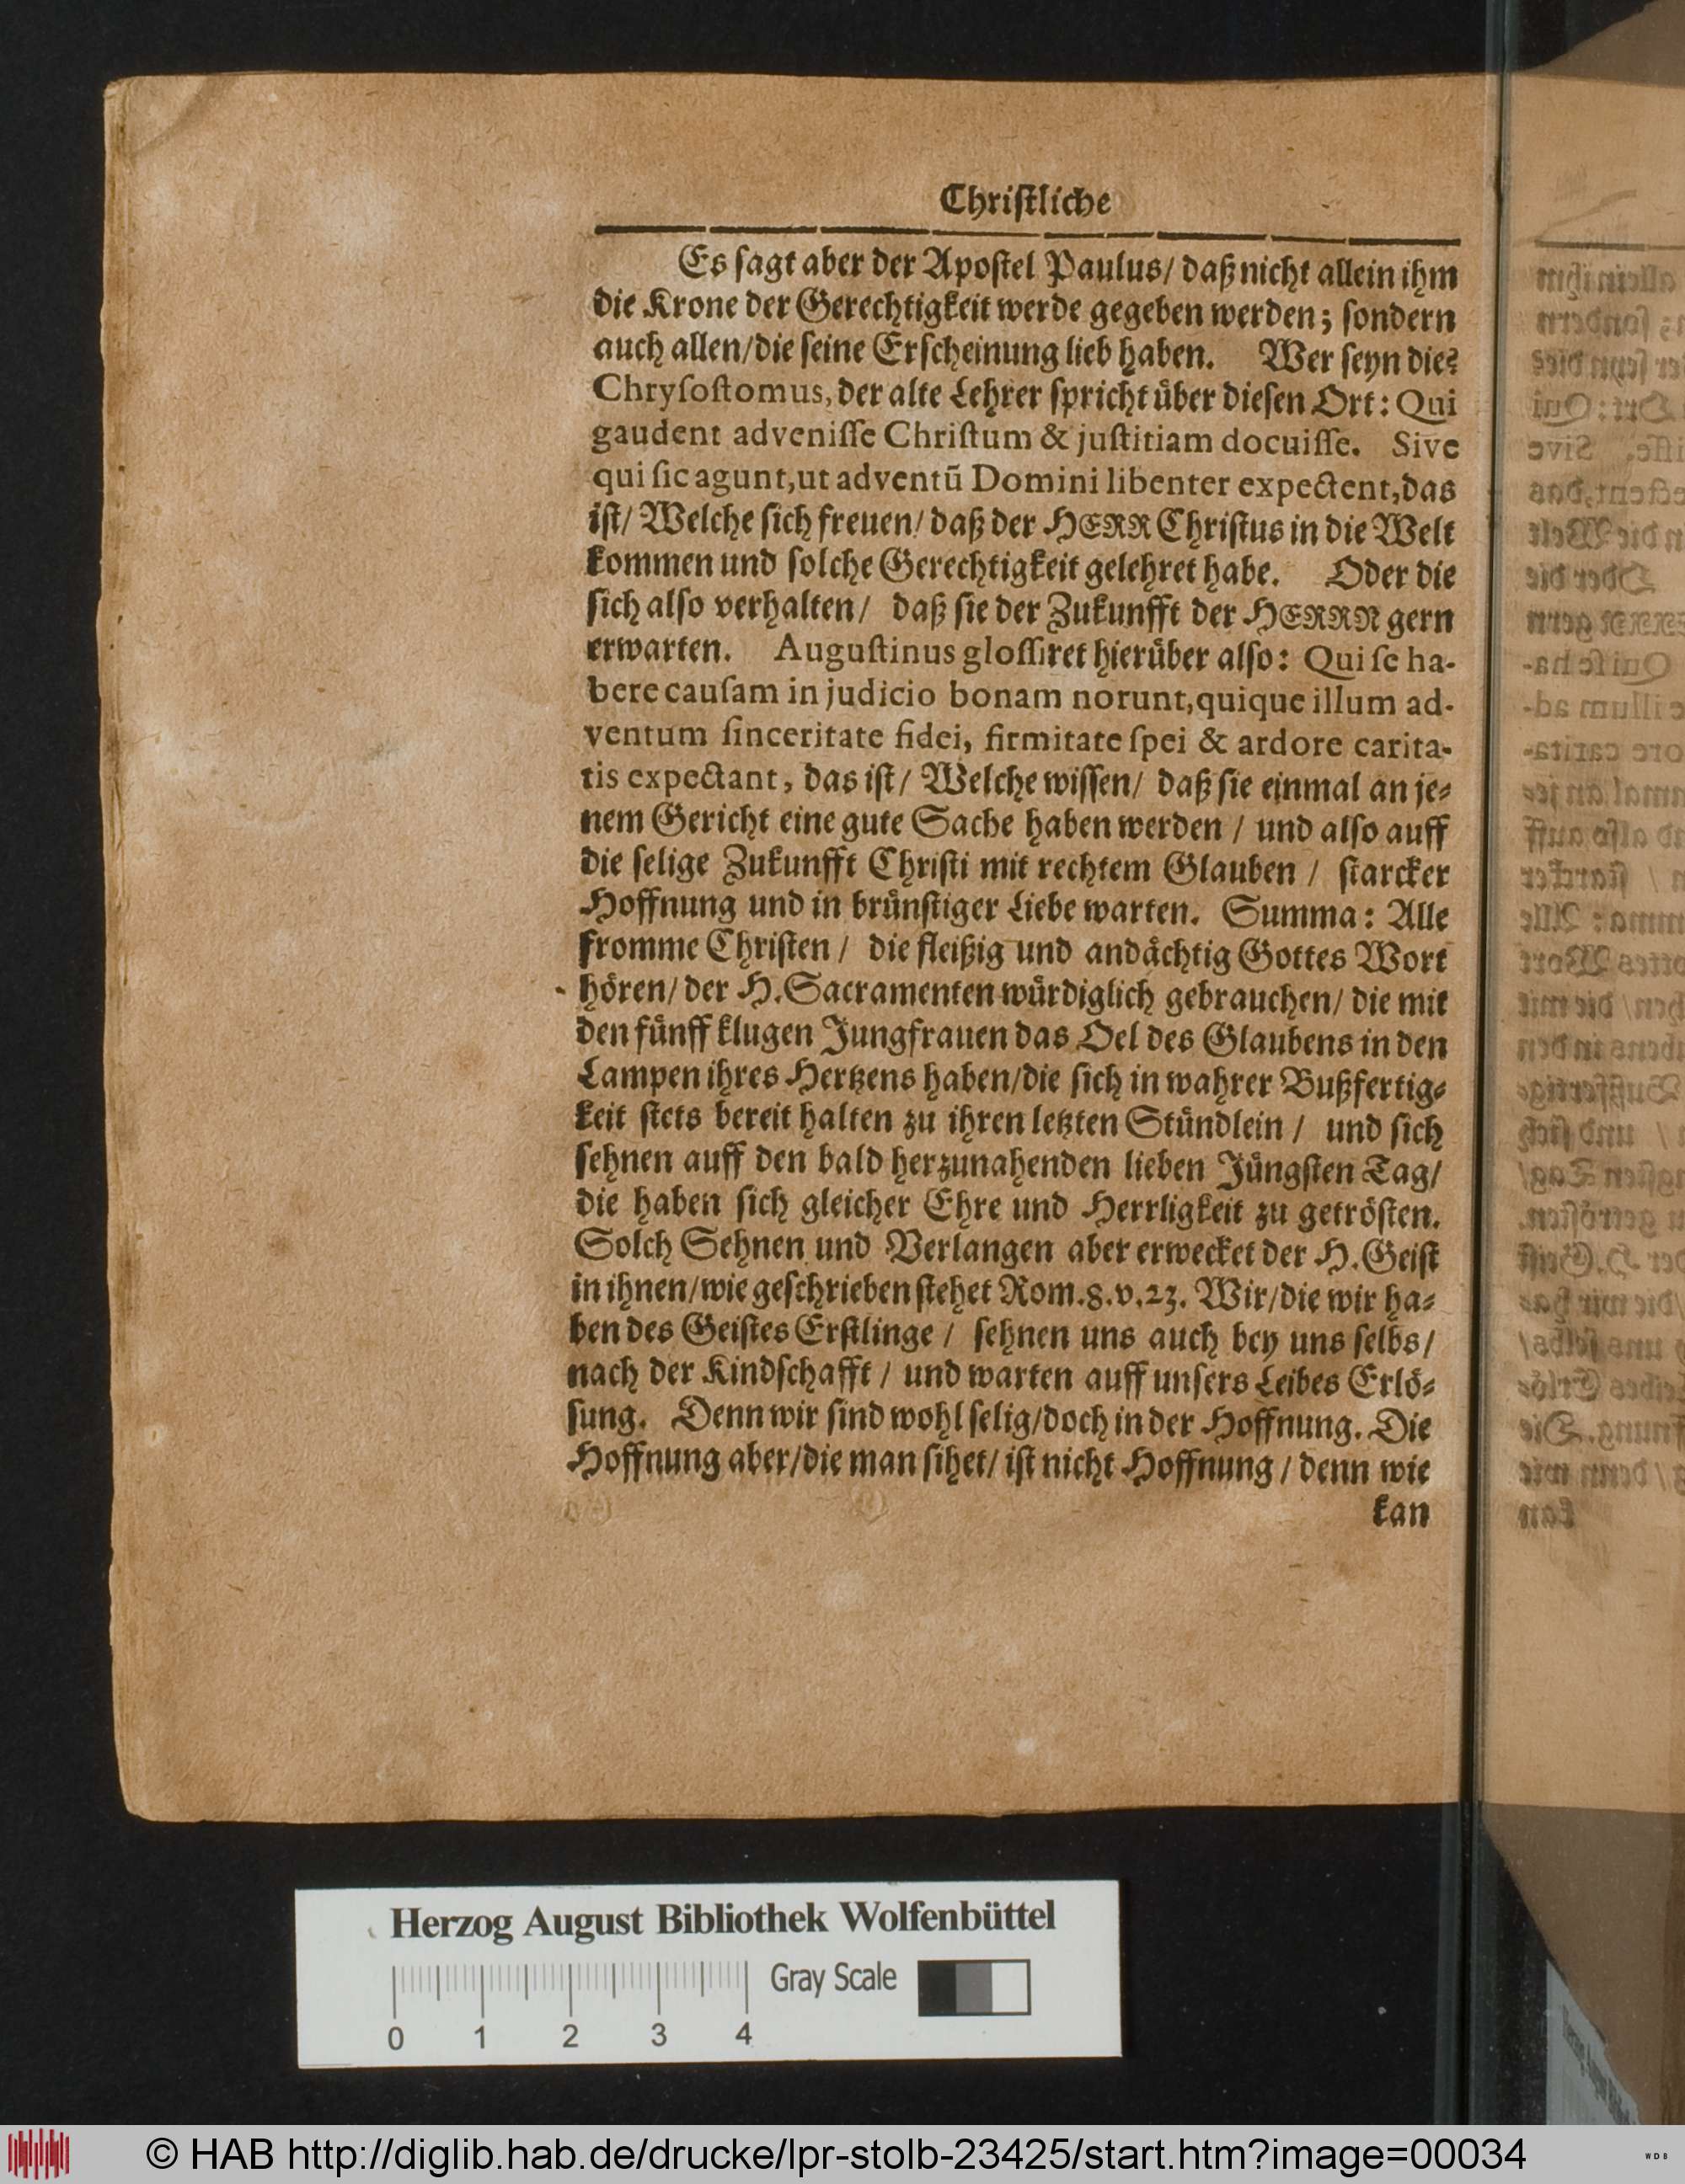 Christliche
Es sagt aber der Apostel Paulus/ daß nicht allein ihm
die Krone der Gerechtigkeit werde gegeben werden; sondern
auch allen/die seine Erscheinung lieb haben. Wer seyn die?
Chryſoſtomus, der alte Lehrer spricht über diesen Ort: Qui
gaudent adveniſſe Chriſtum & juſtitiam docuiſſe. Sive
qui ſic agunt, ut adventū Domini libenter expectent, das
ist/ Welche sich freuen/ daß der HERR Christus in die Welt
kommen und solche Gerechtigkeit gelehret habe. Oder die
sich also verhalten/ daß sie der Zukunfft der HERRN gern
erwarten. Auguſtinus gloſſiret hierüber also: Qui ſe ha-
bere cauſam in judicio bonam norunt, quique illum ad-
ventum ſinceritate fidei, firmitate ſpei & ardore carita-
tis expectant, das ist/ Welche wissen/ daß sie einmal an je-
nem Gericht eine gute Sache haben werden / und also auff
die selige Zukunfft Christi mit rechtem Glauben / starcker
Hoffnung und in brünstiger Liebe warten. Summa: Alle
fromme Christen / die fleißig und andächtig Gottes Wort
hören/ der H. Sacramenten würdiglich gebrauchen/ die mit
den fünff klugen Jungfrauen das Oel des Glaubens in den
Lampen ihres Hertzens haben/die sich in wahrer Bußfertig-
keit stets bereit halten zu ihren letzten Stündlein / und sich
sehnen auff den bald herzunahenden lieben Jüngsten Tag/
die haben sich gleicher Ehre und Herrligkeit zu getrösten.
Solch Sehnen und Verlangen aber erwecket der H. Geist
in ihnen/wie geschrieben stehet Rom. 8. v. 23. Wir/die wir ha-
ben des Geistes Erstlinge / sehnen uns auch bey uns selbs/
nach der Kindschafft / und warten auff unsers Leibes Erlö-
sung. Denn wir sind wohl selig/doch in der Hoffnung. Die
Hoffnung aber/die man sihet/ ist nicht Hoffnung / denn wie
kan
Herzog August Bibliothek Wolfenbüttel
Gray Scale
0 1 2 3 4
© HAB http://diglib.hab.de/drucke/lpr-stolb-23425/start.htm?image=00034
WDB